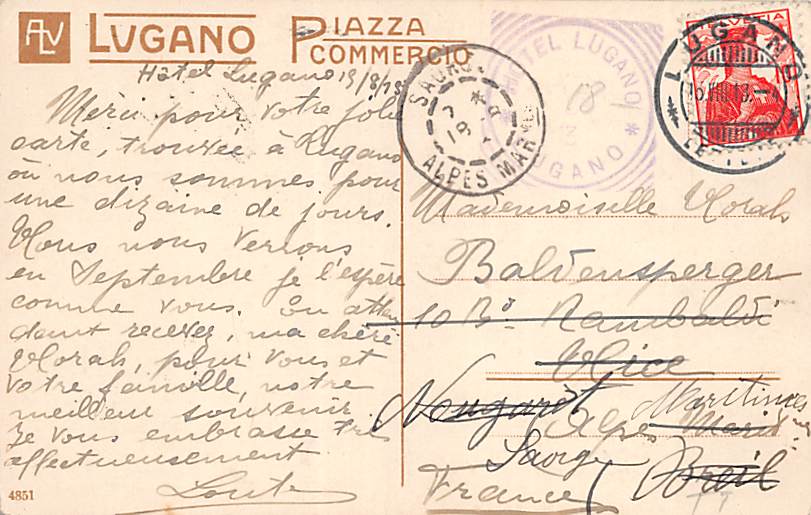 ALV LVGANO PIAZZA
COMMERCIO
Hôtel Lugano 15/8/13
Merci pour votre jolie
carte, trouvée à Lugano
où nous sommes pour
une dizaine de jours.
Nous nous verrons
en Septembre je l'espère
comme vous. En atten
dant recevez, ma chère
Norah, pour vous et
votre famille, notre
meilleur souvenir
Je vous embrasse très
affectueusement
4851
HOTEL LUGANO
18
LUGANO
ALPES MARmes
18
HELVETIA
LUGANO
LETTERE
Mademoiselle Norah
Baldensperger
10 Bd Rambaldi
Nice
Alpes Maritimes
Saorge
France
Breil